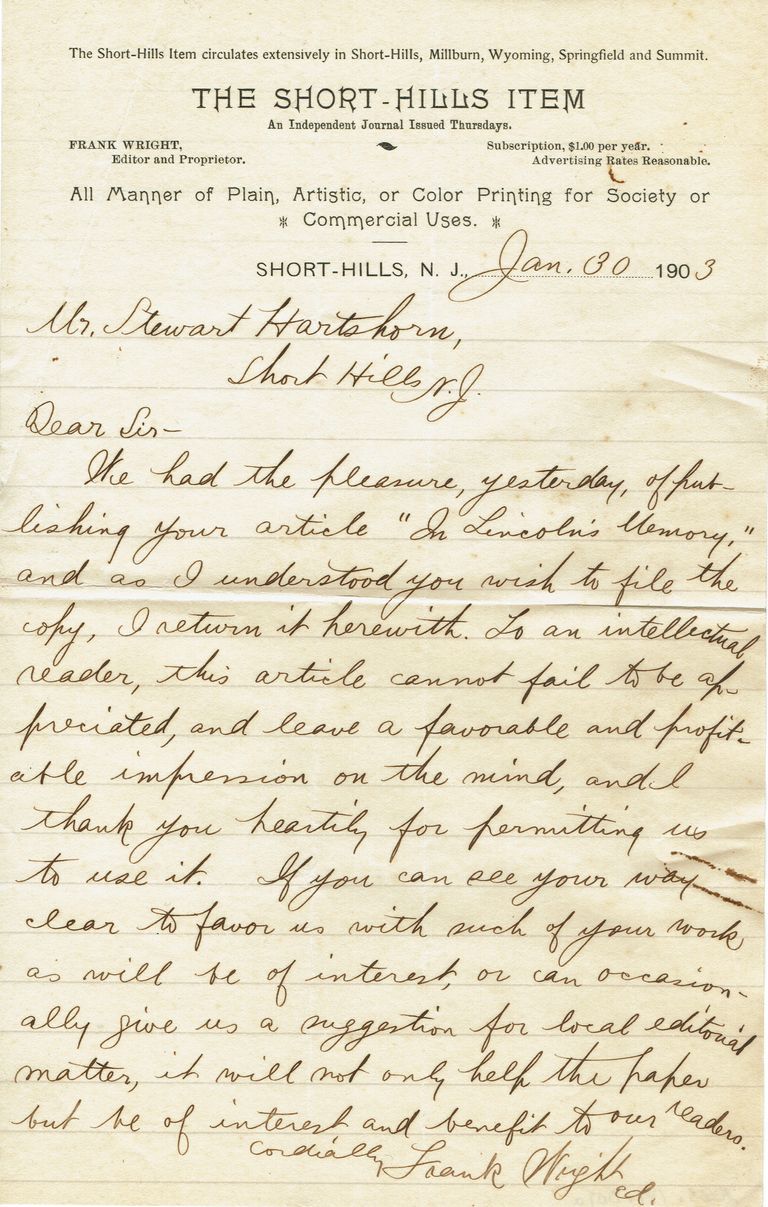 The Short-Hills Item circulates extensively in Short-Hills, Millburn, Wyoming, Springfield and Summit.
THE SHORT-HILLS ITEM
An Independent Journal Issued Thursdays.
FRANK WRIGHT,
Editor and Proprietor.
Subscription, $1.00 per year.
Advertising Rates Reasonable.
All Manner of Plain, Artistic, or Color Printing for Society or
* Commercial Uses. *
SHORT-HILLS, N. J., Jan. 30 1903
Mr. Stewart Hartshorn,
Short Hills N.J.
Dear Sir-
We had the pleasure, yesterday, of pub-
lishing your article "In Lincoln's Memory,"
and as I understood you wish to file the
copy, I return it herewith. To an intellectual
reader, this article cannot fail to be ap-
preciated, and leave a favorable and profit-
able impression on the mind, and I
thank you heartily for permitting us
to use it. If you can see your way
clear to favor us with such of your work
as will be of interest, or can occasion-
ally give us a suggestion for local editorial
matter, it will not only help the paper
but be of interest and benefit to our readers.
Cordially Frank Wright
ed.